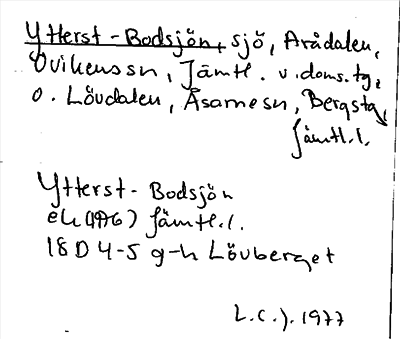 Ytterst-Bodsjön, sjö, Arådalen,
Ovikenssn, Jämtl. v. doms. tg,
o. Lövdalen, Åsarnesn, Bergstg,
Jämtl.l.
Ytterst-Bodsjön
ek (1976) Jämtl.l.
18D 4-5 g-h Lövberget
L.C.J. 1977